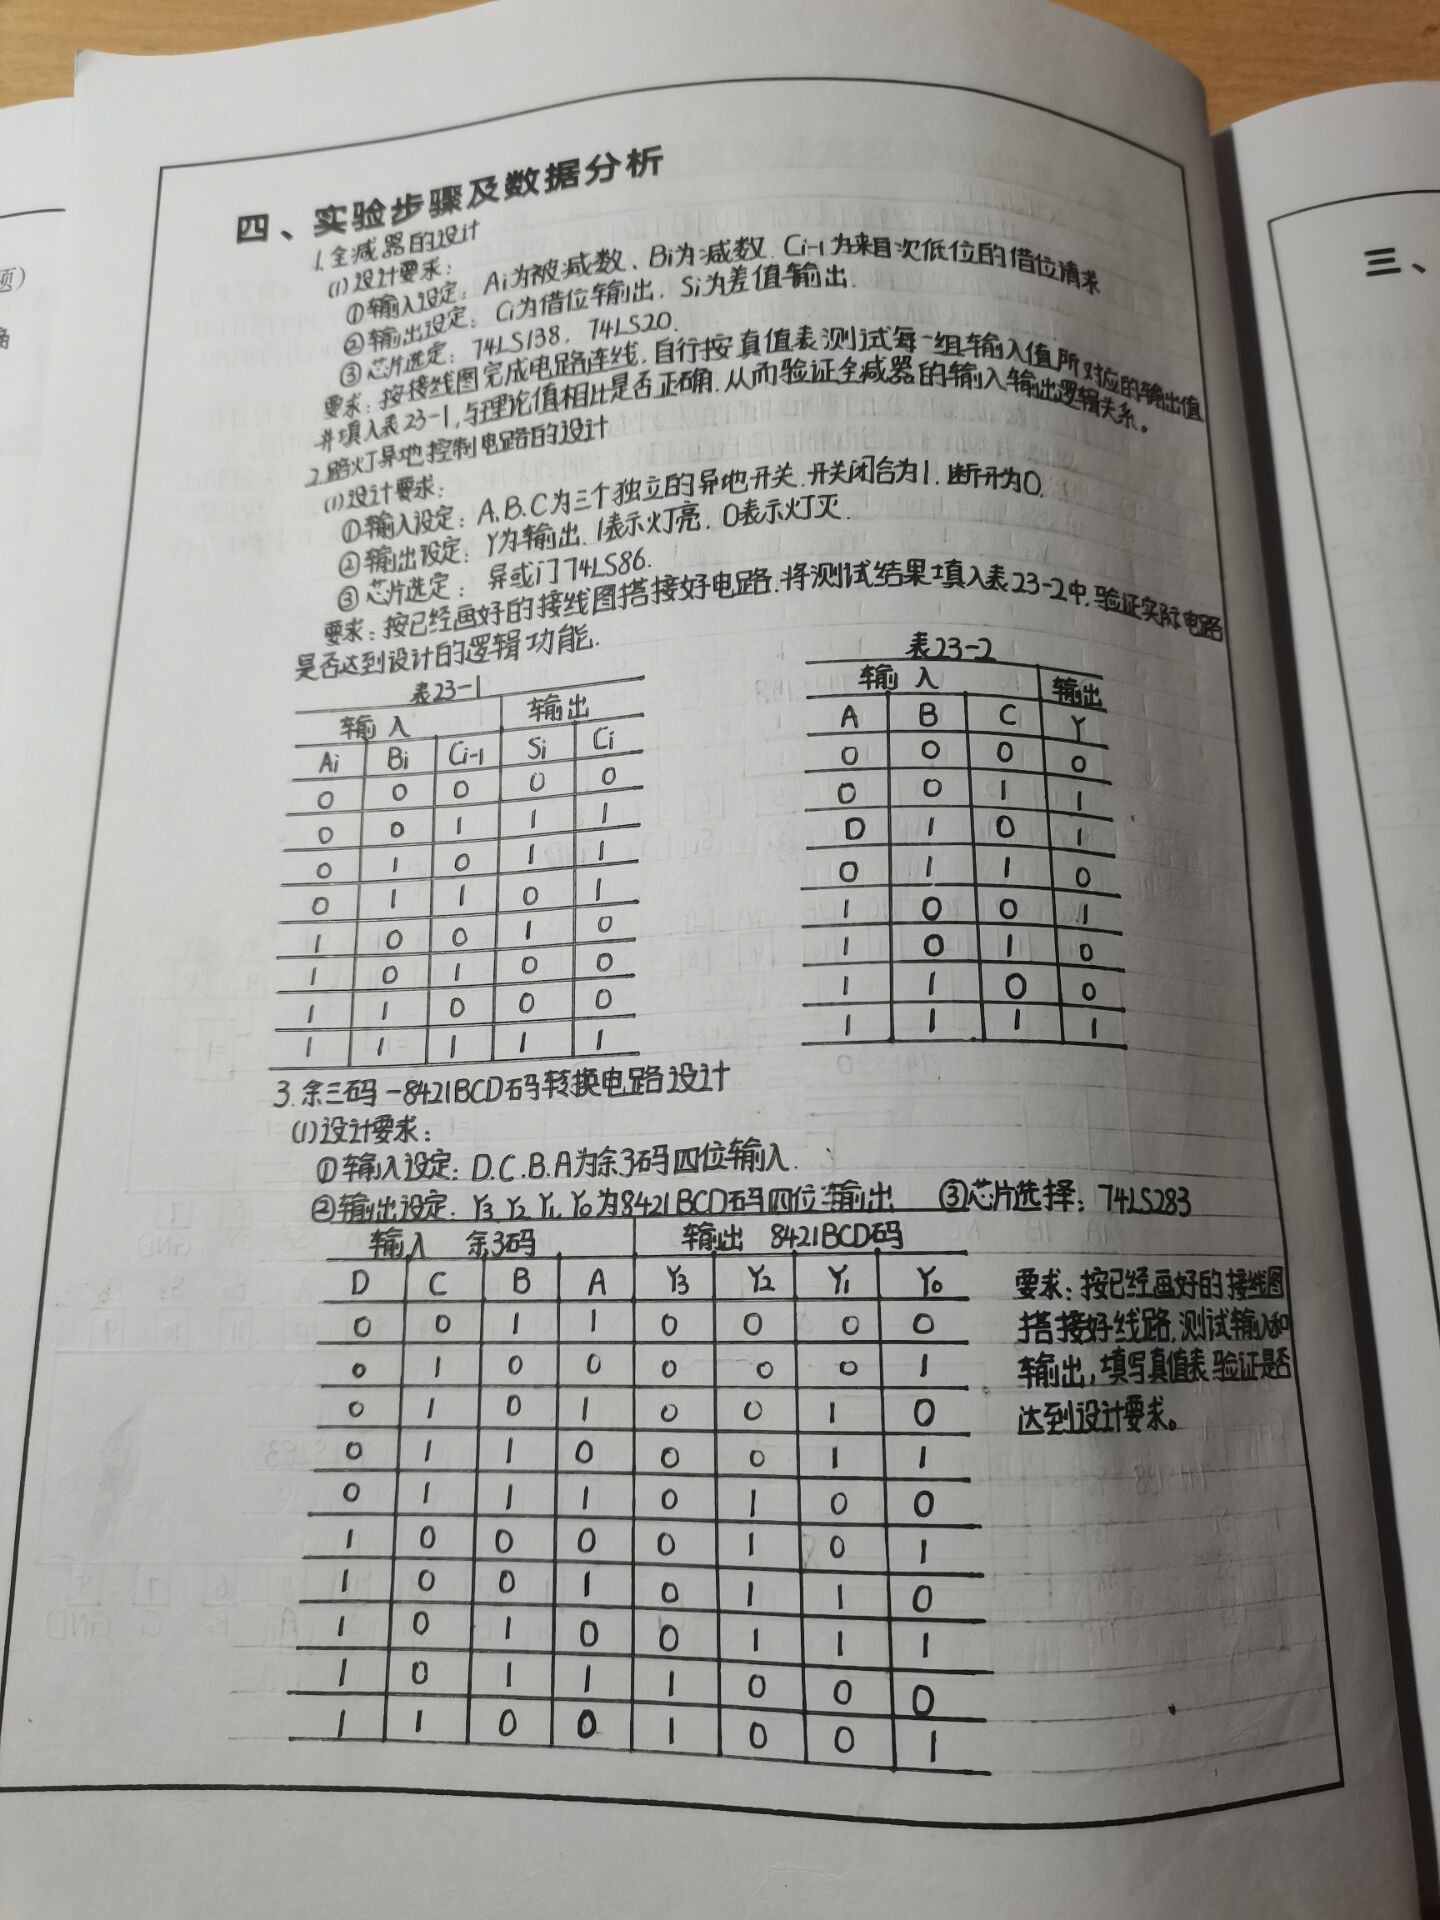 四、实验步骤及数据分析
1.全减器的设计
(1)设计要求:
①输入设定: Ai为被减数、Bi为减数. Ci-1为来自次低位的借位请求
②输出设定: Ci为借位输出. Si为差值输出.
③芯片选定: 74LS138. 74LS20.
要求:按接线图完成电路连线.自行按真值表测试每一组输入值所对应的输出值
并填入表23-1,与理论值相比是否正确.从而验证全减器的输入输出逻辑关系。
2.路灯异地控制电路的设计
(1)设计要求:
①输入设定: A.B.C为三个独立的异地开关.开关闭合为1.断开为0.
②输出设定: Y为输出.1表示灯亮.0表示灯灭.
③芯片选定: 异或门74LS86.
要求:按已经画好的接线图搭接好电路.将测试结果填入表23-2中.验证实际电路
是否达到设计的逻辑功能.
表23-1
输入 输出
Ai Bi Ci-1 Si Ci
0 0 0 0 0
0 0 1 1 1
0 1 0 1 1
0 1 1 0 1
1 0 0 1 0
1 0 1 0 0
1 1 0 0 0
1 1 1 1 1
表23-2
输入 输出
A B C Y
0 0 0 0
0 0 1 1
0 1 0 1
0 1 1 0
1 0 0 1
1 0 1 0
1 1 0 0
1 1 1 1
3.余三码-8421BCD码转换电路设计
(1)设计要求:
①输入设定: D.C.B.A为余3码四位输入.
②输出设定: Y3 Y2 Y1 Y0为8421BCD码四位输出 ③芯片选择: 74LS283
输入 余3码 输出 8421BCD码
D C B A Y3 Y2 Y1 Y0
0 0 1 1 0 0 0 0
0 1 0 0 0 0 0 1
0 1 0 1 0 0 1 0
0 1 1 0 0 0 1 1
0 1 1 1 0 1 0 0
1 0 0 0 0 1 0 1
1 0 0 1 0 1 1 0
1 0 1 0 0 1 1 1
1 0 1 1 1 0 0 0
1 1 0 0 1 0 0 1
要求:按已经画好的接线图
搭接好线路.测试输入和
输出,填写真值表验证是否
达到设计要求。
三、